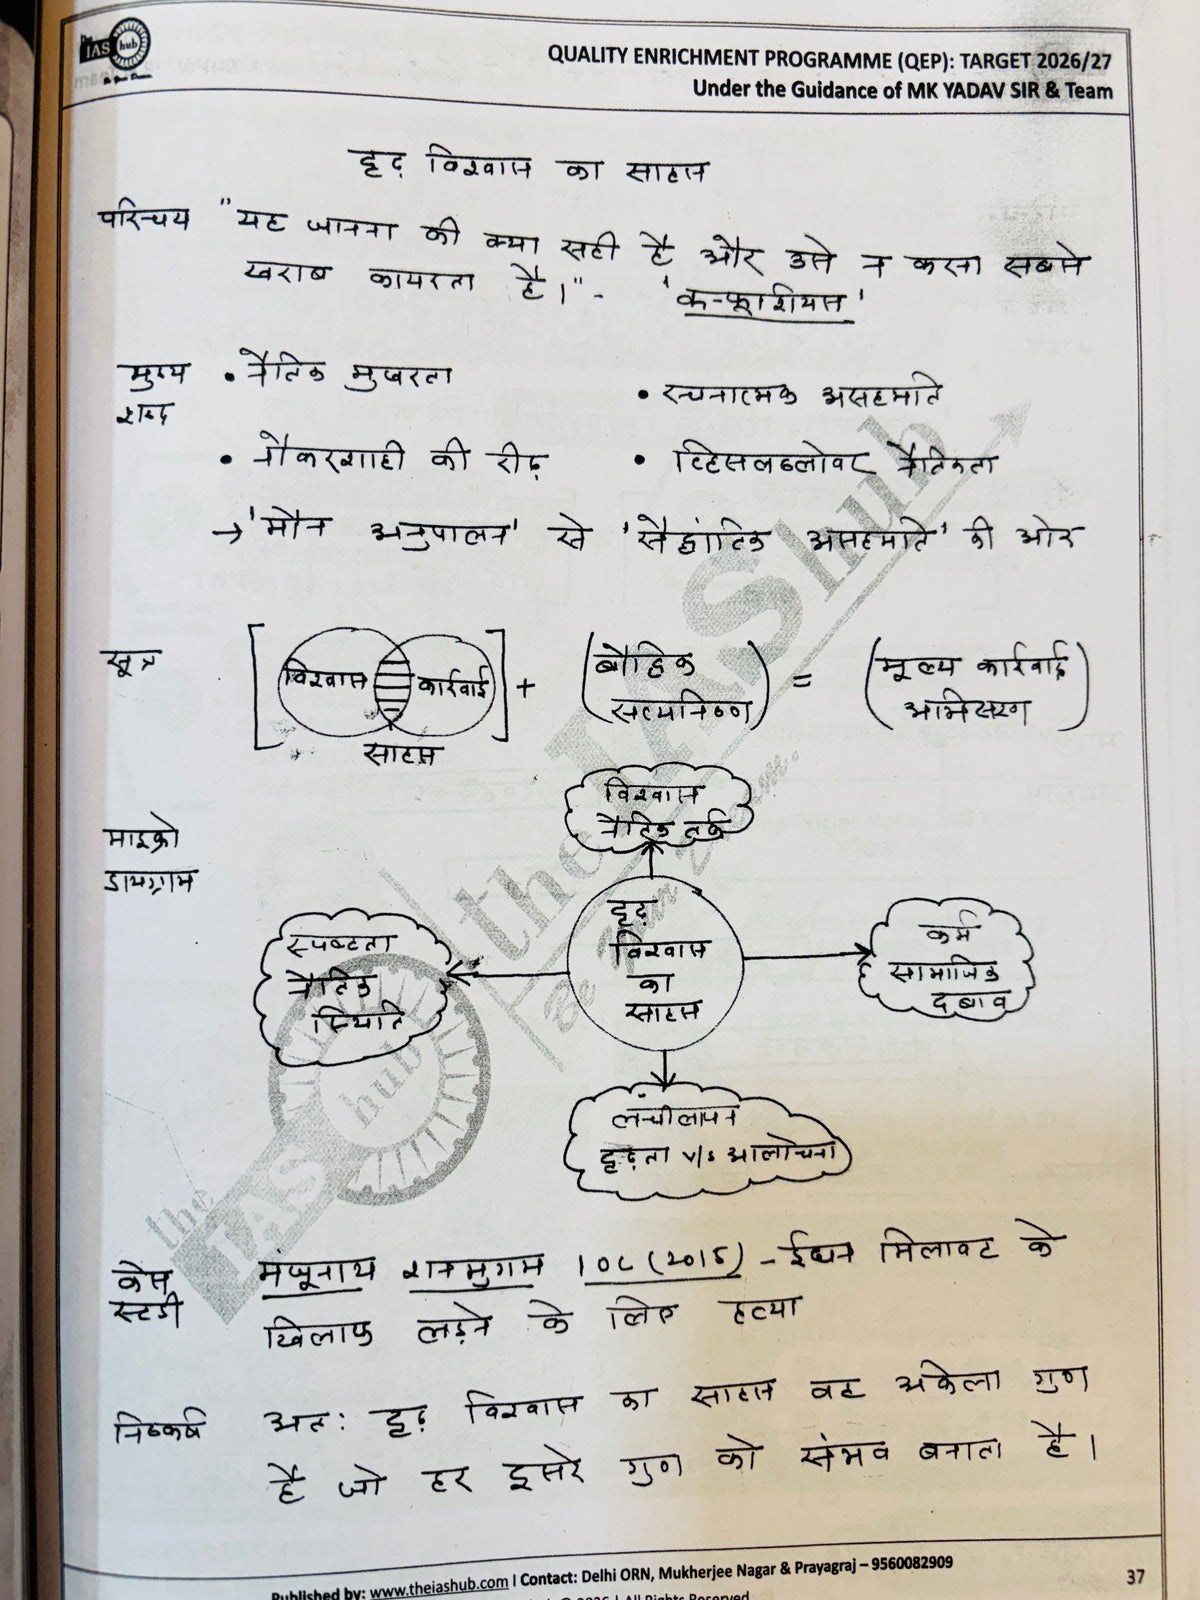 the IAS hub
QUALITY ENRICHMENT PROGRAMME (QEP): TARGET 2026/27
Under the Guidance of MK YADAV SIR & Team
दृढ़ विश्वास का साहस
परिचय "यह जानना की क्या सही है और उसे न करना सबसे
खराब कायरता है।" - 'कन्फूशियस'
मुख्य शब्द
• नैतिक मुखरता
• रचनात्मक असहमति
• नौकरशाही की रीढ़
• व्हिसलब्लोवर नैतिकता
→ 'मौन अनुपालन' से 'सैद्धांतिक असहमति' की ओर
सूत्र
[विश्वास कार्रवाई] + (बौद्धिक सत्यनिष्ठा) = (मूल्य कार्रवाई अभिसरण)
साहस
माइक्रो
डायग्राम
विश्वास
नैतिक तर्क
स्पष्टता
नैतिक
स्थिति
दृढ़
विश्वास
का
साहस
कर्म
सामाजिक
दबाव
लचीलापन
दृढ़ता v/s आलोचना
केस
स्टडी
मंजूनाथ शनमुगम IOC - ईंधन मिलावट के
खिलाफ लड़ने के लिए हत्या
निष्कर्ष
अतः दृढ़ विश्वास का साहस वह अकेला गुण
है जो हर दूसरे गुण को संभव बनाता है।
the IAS hub
Published by: www.theiashub.com I Contact: Delhi ORN, Mukherjee Nagar & Prayagraj – 9560082909
37
All Rights Reserved